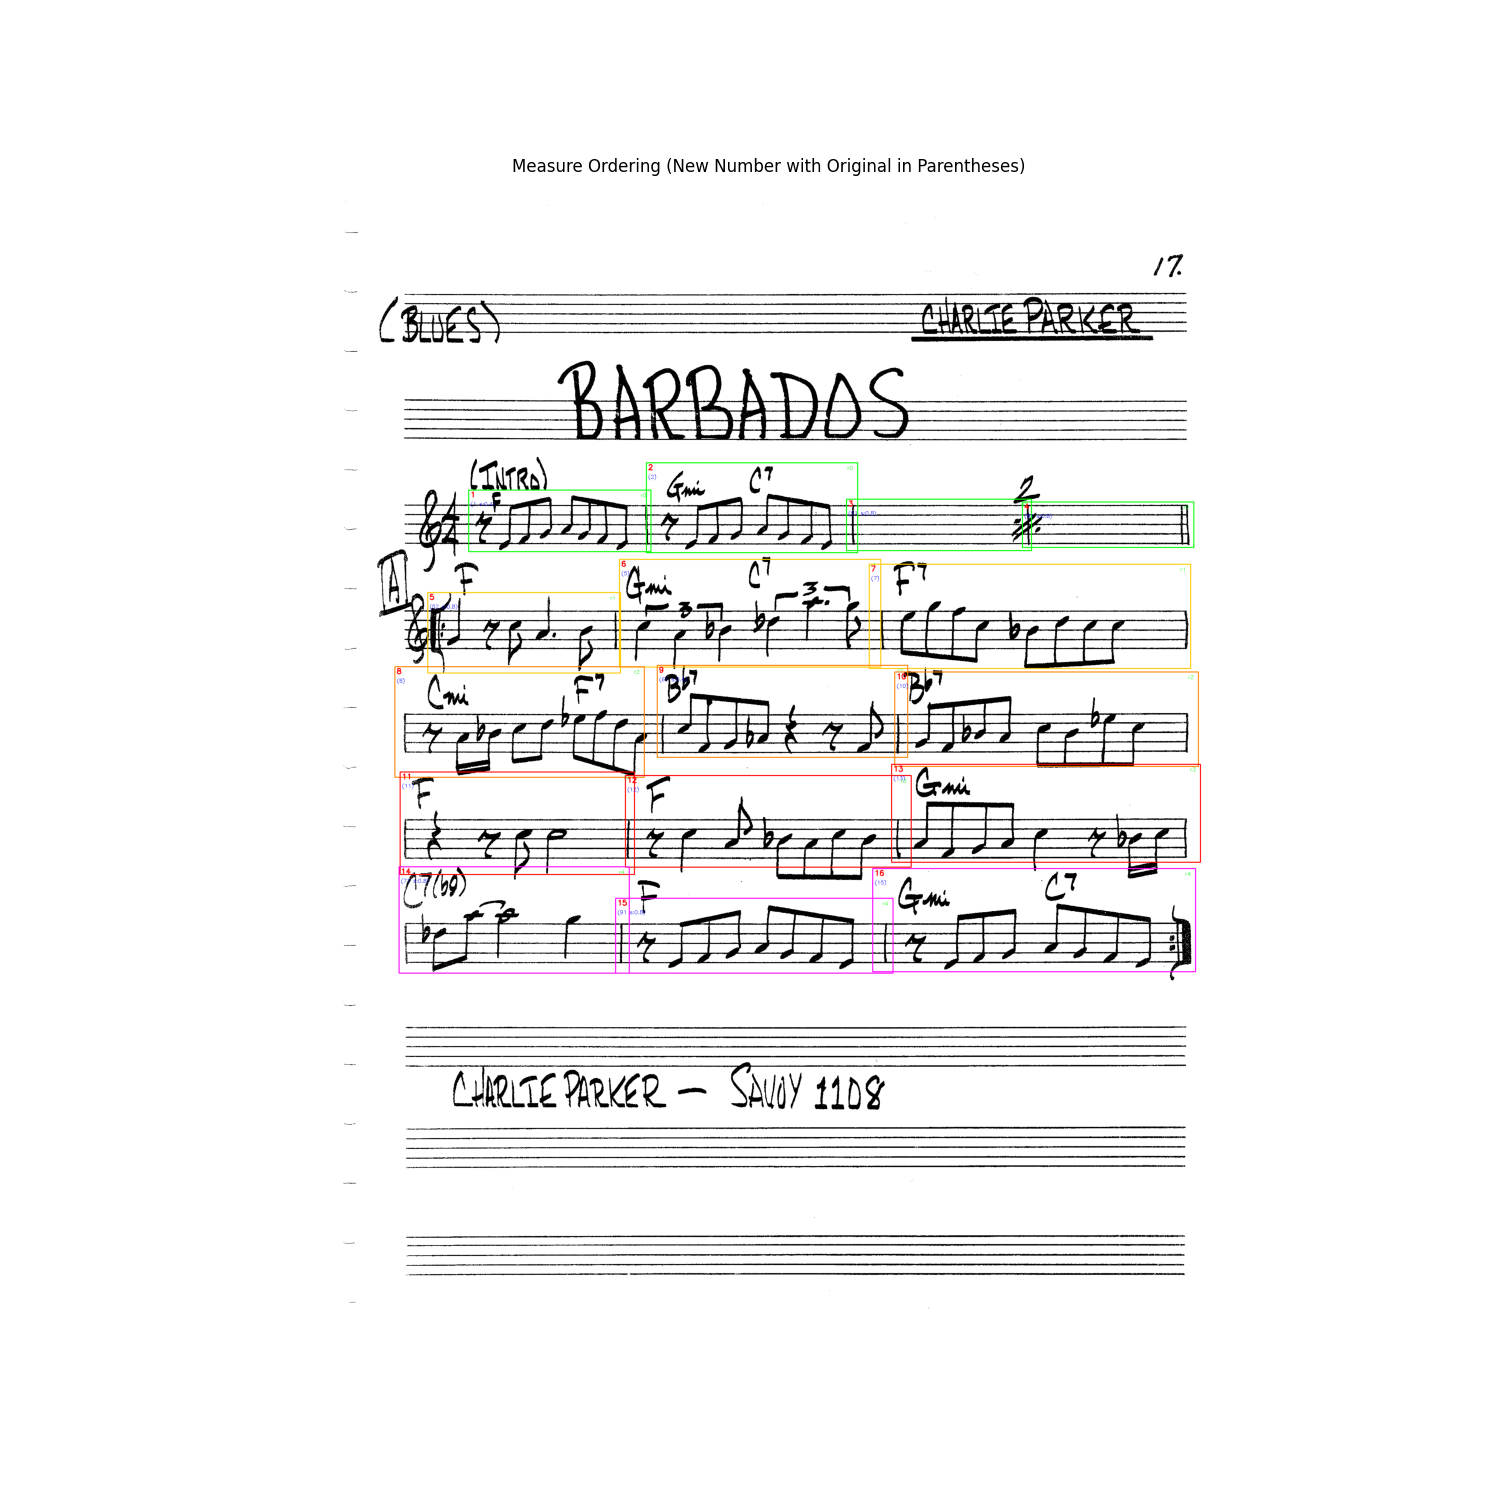 Measure Ordering (New Number with Original in Parentheses)
17.
(BLUES)
CHARLIE PARKER
BARBADOS
(INTRO)
1 F
2 (2) Gmi C7
2
4
4
A
F
5
6 (5) Gmi C7
3 3
7 (7) F7
8 (8) Cmi F7
9 Bb7
10 (10) Bb7
11 (11) F
12 (12) F
13 (13) Gmi
14 C7(b9)
15 F
16 (15) Gmi C7
CHARLIE PARKER — SAVOY 1108